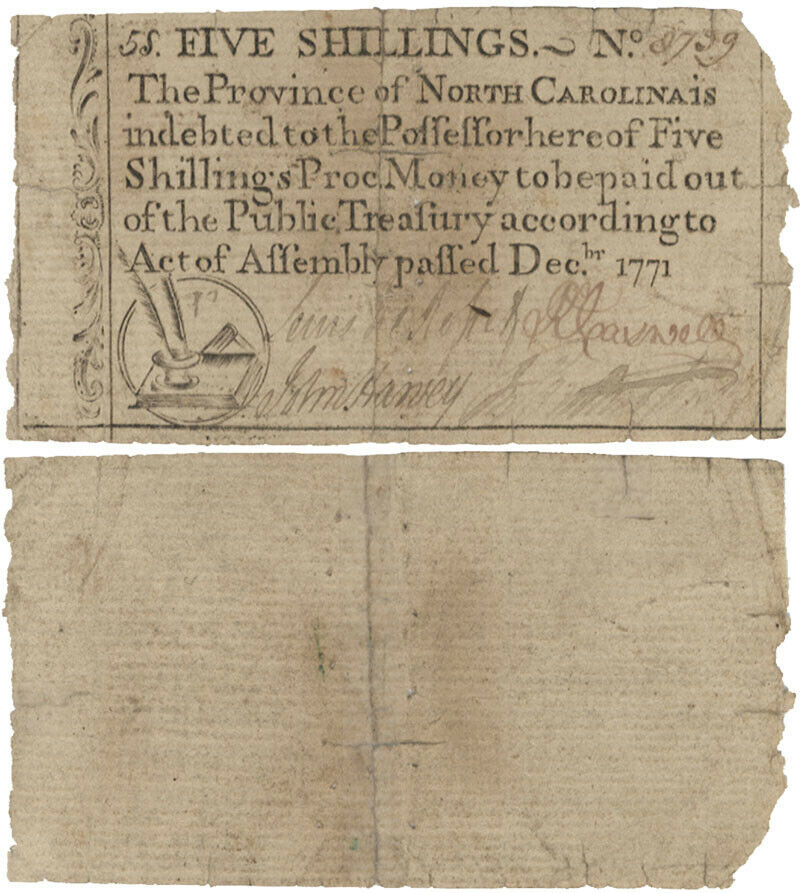 5s. FIVE SHILLINGS.~ Nº. 8739
The Province of NORTH CAROLINA is
indebted to the Poſſeſſor hereof Five
Shillings Proc. Money to be paid out
of the Public Treaſury according to
Act of Aſſembly paſſed Dec.br 1771
Lewis
John Harvey